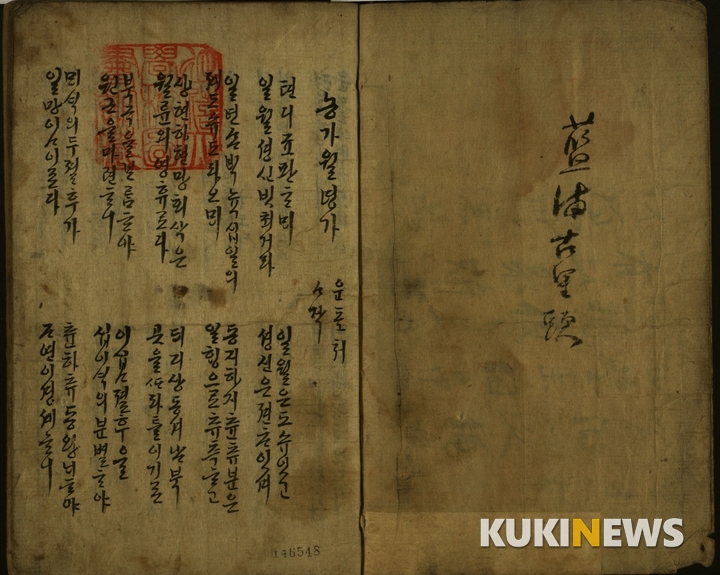 藍浦古
농가월령가
운포쳐
ᄉᆞ작
텬디죠판ᄒᆞᄆᆡ
일월셩신빗최거다
일월은도수잇고
셩신은젼ᄎᆞ잇셔
일년ᄉᆞᆷᄇᆡᆨ뉵십일의
도로오ᄆᆡ
동지하지츈츄분은
일ᄒᆡᆼ으로츄측ᄒᆞ고
상현하현망회삭은
월륜의영휴로다
ᄃᆡ디상동셔남북
곳을ᄯᆞ라틀이기로
북극을보ᄅᆞᆷᄒᆞ야
원근을마련ᄒᆞ니
이십ᄉᆞ졀후을
십이삭의분별ᄒᆞ야
ᄆᆡ삭의두졀후가
일망이ᄉᆞ이로다
츈하츄동왕ᄂᆡᄒᆞ야
ᄌᆞ연이셩셰ᄒᆞ니
146548
KUKINEWS